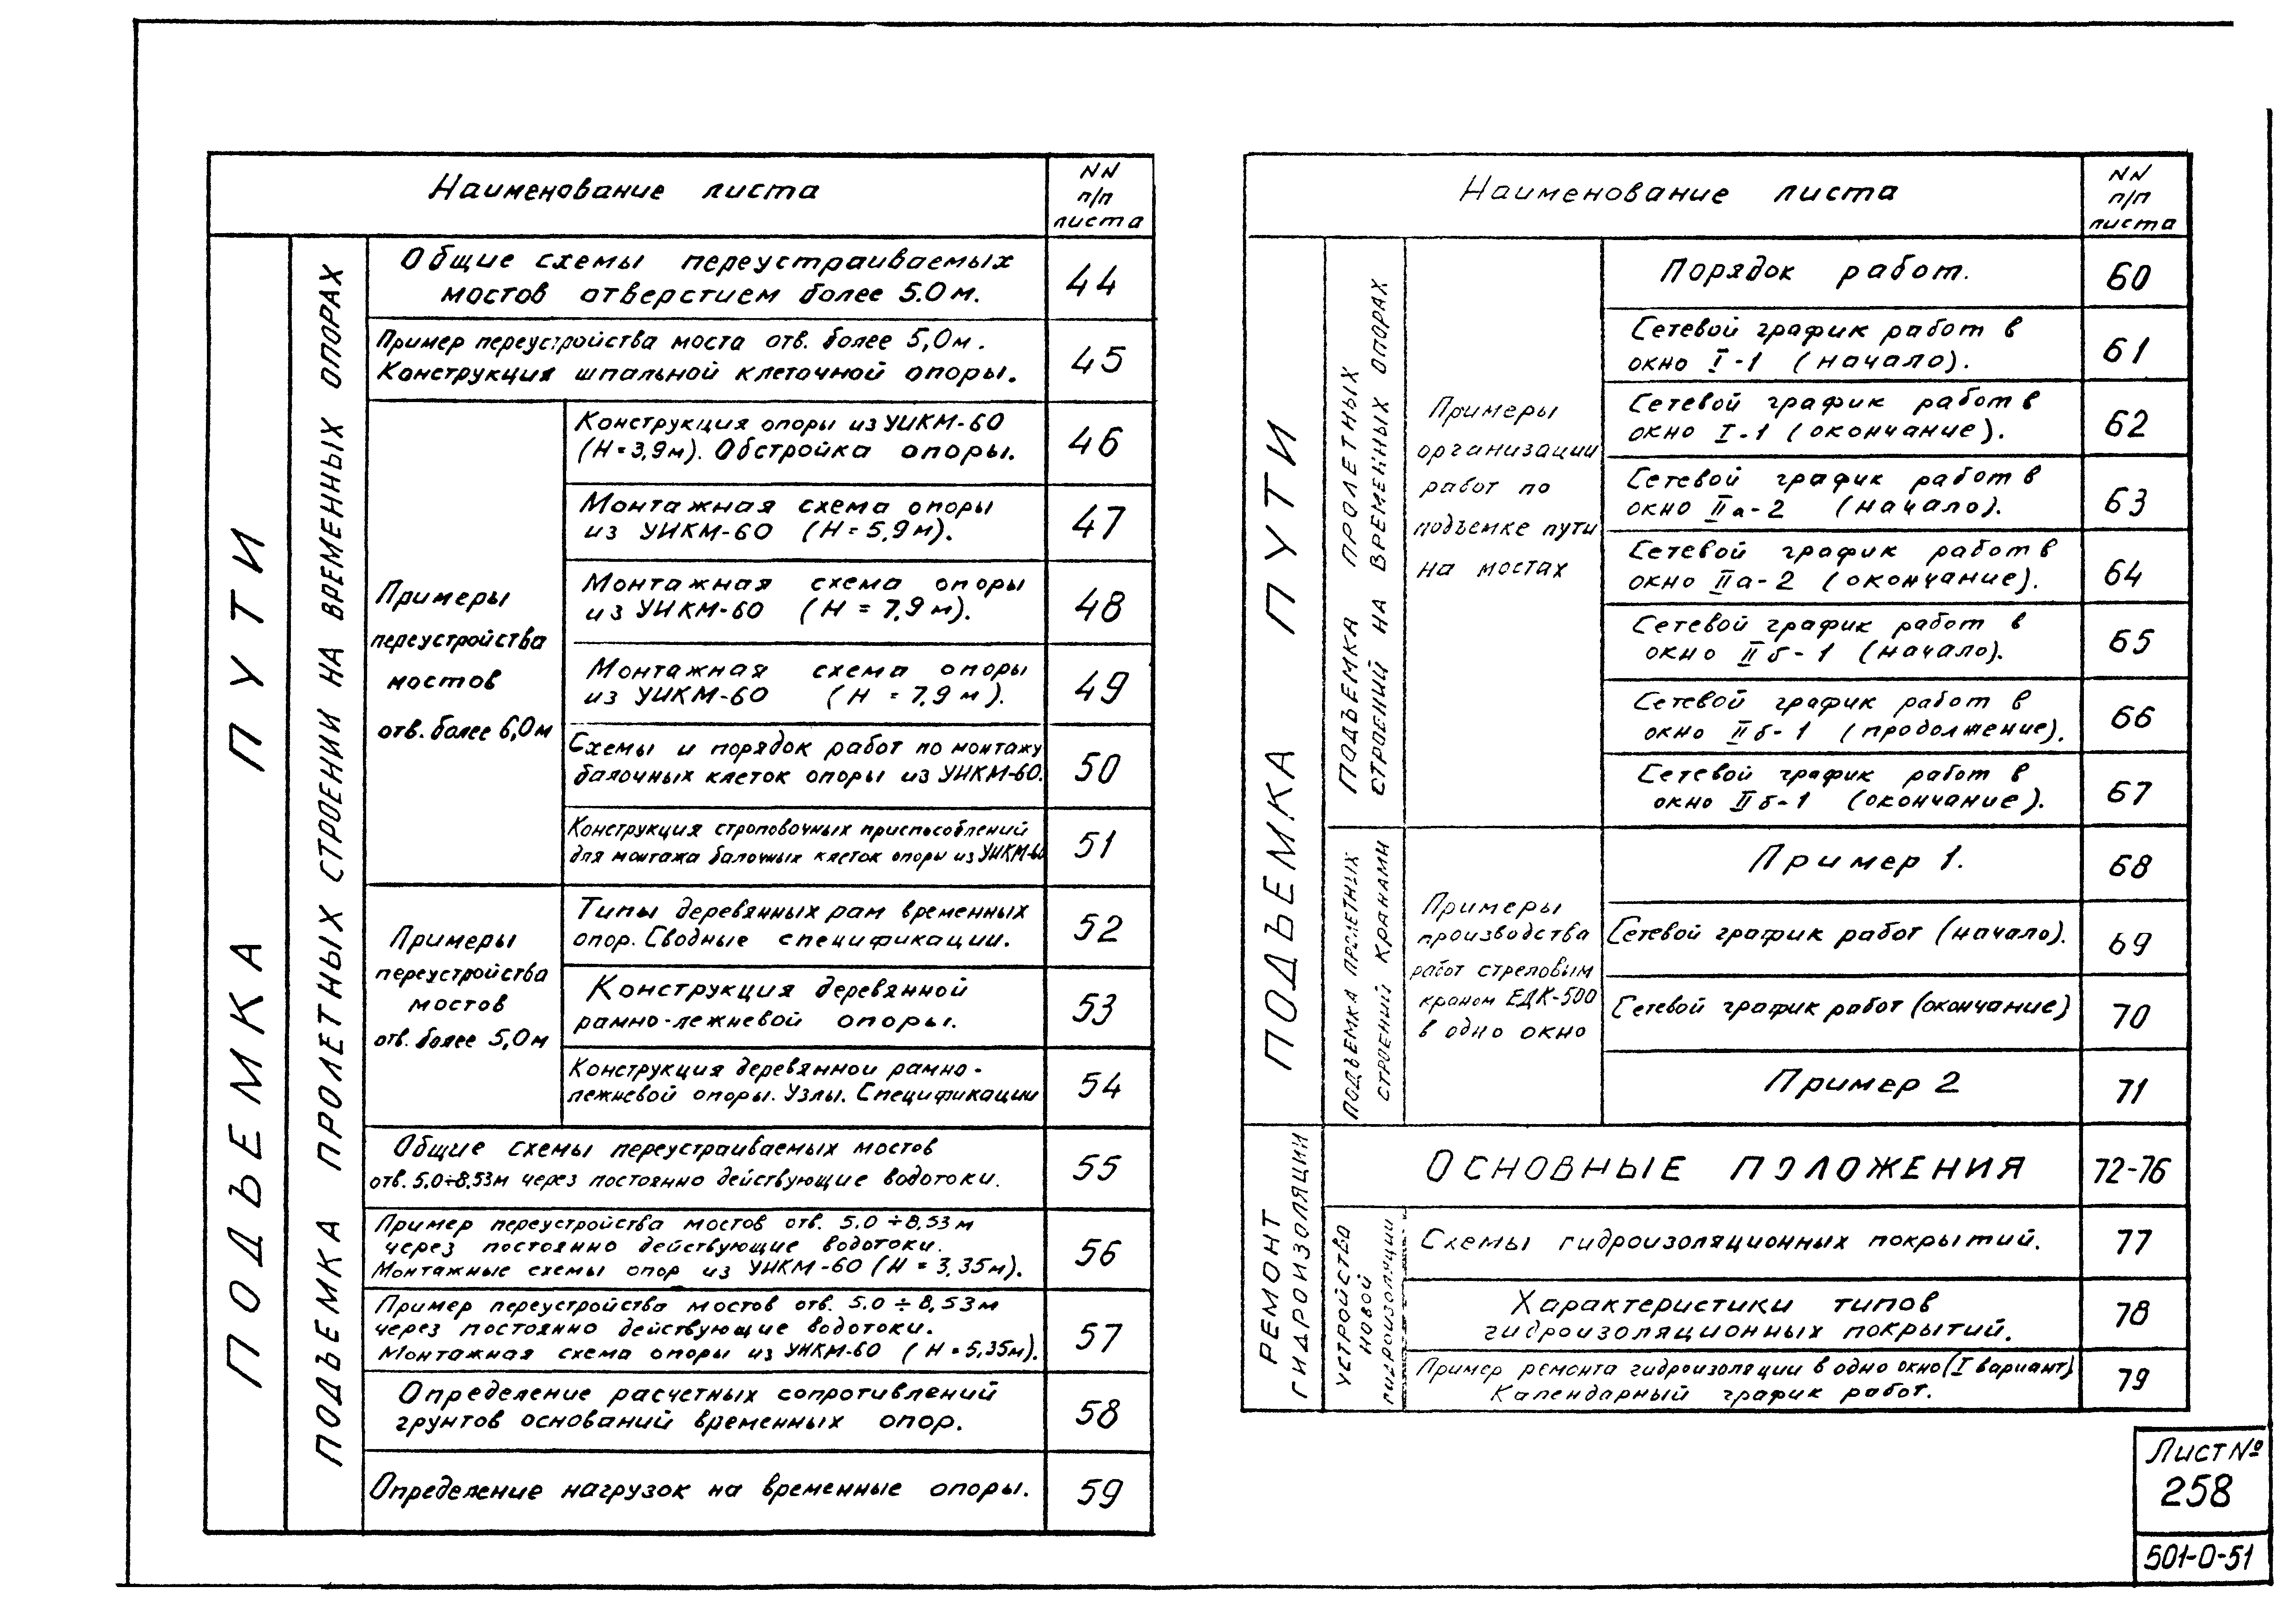 Наименование листа
NN
п/п
листа
ПОДЪЕМКА ПУТИ
ПОДЪЕМКА ПРОЛЕТНЫХ СТРОЕНИИ НА ВРЕМЕННЫХ ОПОРАХ
Общие схемы переустраиваемых
мостов отверстием более 5.0м.
44
Пример переустройства моста отв. более 5,0м.
Конструкция шпальной клеточной опоры.
45
Примеры
переустройства
мостов
отв. более 6,0м
Конструкция опоры из УИКМ-60
(H=3,9м). Обстройка опоры.
46
Монтажная схема опоры
из УИКМ-60 (H=5,9м).
47
Монтажная схема опоры
из УИКМ-60 (H = 7,9м).
48
Монтажная схема опоры
из УИКМ-60 (H = 7,9м).
49
Схемы и порядок работ по монтажу
балочных клеток опоры из УИКМ-60.
50
Конструкция строповочных приспособлений
для монтажа балочных клеток опоры из УИКМ-60
51
Примеры
переустройства
мостов
отв. более 5,0м
Типы деревянных рам временных
опор. Сводные спецификации.
52
Конструкция деревянной
рамно-лежневой опоры.
53
Конструкция деревяннои рамно-
лежневой опоры. Узлы. Спецификации
54
Общие схемы переустраиваемых мостов
отв. 5.0÷8,53м через постоянно действующие водотоки.
55
Пример переустройства мостов отв. 5.0÷8,53м
через постоянно действующие водотоки.
Монтажные схемы опор из УИКМ-60 (H = 3,35м).
56
Пример переустройства мостов отв. 5.0÷8,53м
через постоянно действующие водотоки.
Монтажная схема опоры из УИКМ-60 (H=5,35м).
57
Определение расчетных сопротивлений
грунтов оснований временных опор.
58
Определение нагрузок на временные опоры.
59
Наименование листа
NN
п/п
листа
ПОДЪЕМКА ПУТИ
ПОДЪЕМКА ПРОЛЕТНЫХ
СТРОЕНИЙ НА ВРЕМЕННЫХ ОПОРАХ
Примеры
организации
работ по
подъемке пути
на мостах
Порядок работ.
60
Сетевой график работ в
окно I-1 (начало).
61
Сетевой график работ в
окно I-1 (окончание).
62
Сетевой график работ в
окно IIа-2 (начало).
63
Сетевой график работ в
окно IIа-2 (окончание).
64
Сетевой график работ в
окно IIб-1 (начало).
65
Сетевой график работ в
окно IIб-1 (продолжение).
66
Сетевой график работ в
окно IIб-1 (окончание).
67
ПОДЪЕМКА ПРОЛЕТНЫХ
СТРОЕНИЙ КРАНАМИ
Примеры
производства
работ стреловым
краном ЕДК-500
в одно окно
Пример 1.
68
Сетевой график работ (начало).
69
Сетевой график работ (окончание)
70
Пример 2
71
РЕМОНТ
ГИДРОИЗОЛЯЦИИ
ОСНОВНЫЕ ПОЛОЖЕНИЯ
72-76
УСТРОЙСТВО
НОВОЙ
ГИДРОИЗОЛЯЦИИ
Схемы гидроизоляционных покрытий.
77
Характеристики типов
гидроизоляционных покрытий.
78
Пример ремонта гидроизоляции в одно окно (I вариант)
Календарный график работ.
79
Лист №
258
501-0-51